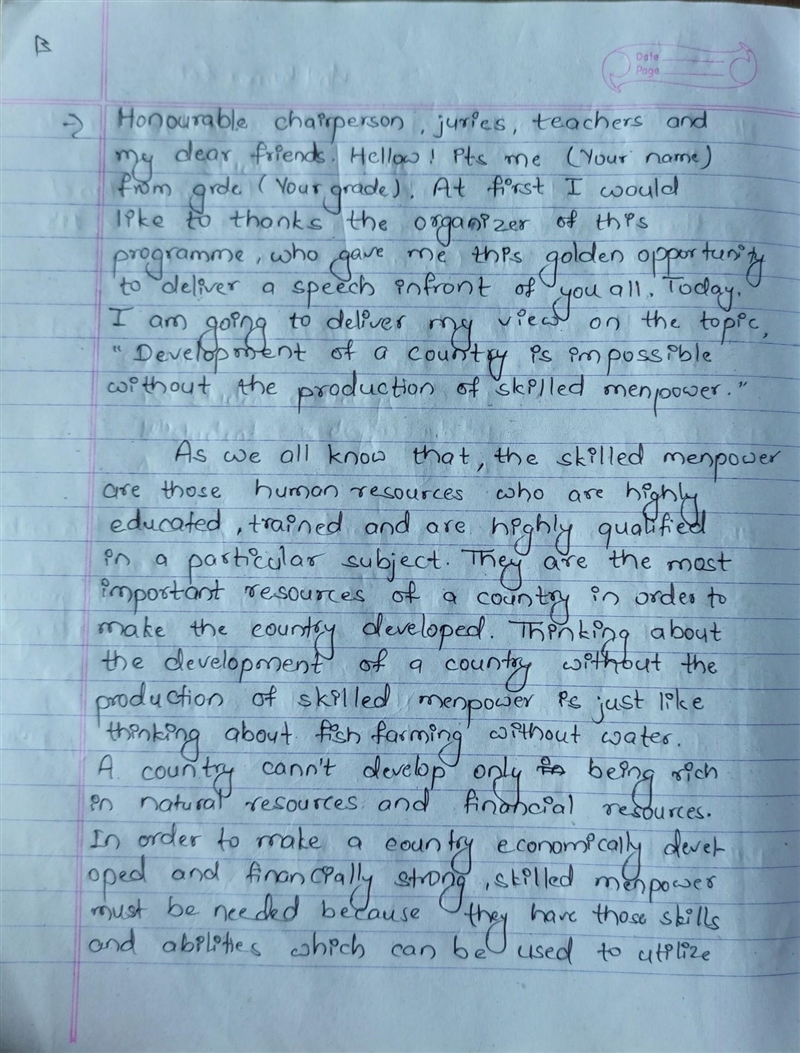 B
Date
Page
→ Honourable chairperson, juries, teachers and
my dear friends. Hellow! Its me (Your name)
from grde (Your grade). At first I would
like to thanks the organizer of this
programme, who gave me this golden opportunity
to deliver a speech infront of you all. Today,
I am going to deliver my view on the topic,
"Development of a country is impossible
without the production of skilled menpower."
As we all know that, the skilled menpower
are those human resources who are highly
educated, trained and are highly qualified
in a particular subject. They are the most
important resources of a country in order to
make the country developed. Thinking about
the development of a country without the
production of skilled menpower is just like
thinking about fish farming without water.
A country cann't develop only being rich
in natural resources and financial resources.
In order to make a country economically devel-
oped and financially strong, skilled menpower
must be needed because they have those skills
and abilities which can be used to utilize